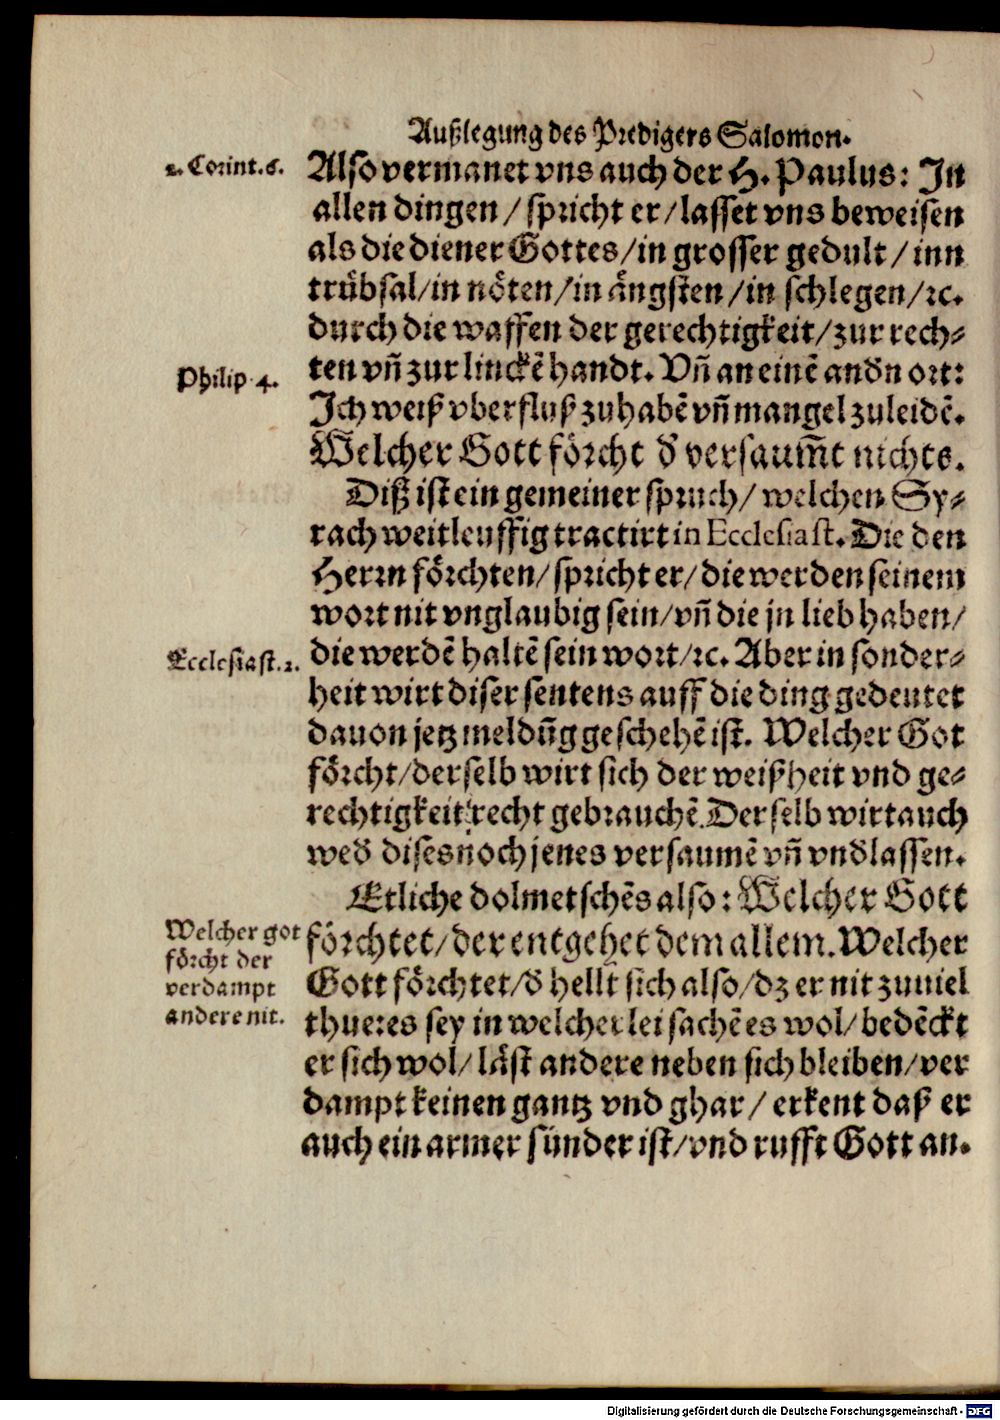 Außlegung des Predigers Salomon.
2. Corint. 6.
Also vermanet vns auch der H. Paulus: In
allen dingen / spricht er / lasset vns beweisen
als die diener Gottes / in grosser gedult / inn
trübsal / in nöten / in ängsten / in schlegen / ꝛc.
durch die waffen der gerechtigkeit / zur rech⸗
ten vñ zur linckẽ handt. Vñ an einẽ andn ort:
Philip. 4.
Ich weiß vberfluß zu habẽ vñ mangel zuleidẽ.
Welcher Gott förcht d̕ versaum̃t nichts.
Diß ist ein gemeiner spruch / welchen Sy⸗
rach weitleuffig tractirt in Ecclesiast. Die den
Herrn förchten / spricht er / die werden seinem
wort nit vnglaubig sein / vñ die jn lieb haben /
Ecclesiast. 2.
die werdẽ haltẽ sein wort / ꝛc. Aber in sonder⸗
heit wirt diser sentens auff die ding gedeutet
dauon jetz meldũg geschehẽ ist. Welcher Got
förcht / derselb wirt sich der weißheit vnd ge⸗
rechtigkeit recht gebrauchẽ. Der selb wirt auch
wed̕ dises noch jenes versaumẽ vñ vnd̕lassen.
Etliche dolmetschẽs also: Welcher Gott
Welcher got
förcht der
verdampt
andere nit.
förchtet / der entgehet dem allem. Welcher
Gott förchtet / d̕ hellt sich also / dz er nit zuuiel
thue: es sey in welcherlei sachẽ es wol / bedẽckt
er sich wol / läst andere neben sich bleiben / ver
dampt keinen gantz vnd ghar / erkent daß er
auch ein armer sünder ist / vnd rufft Gott an.
Digitalisierung gefördert durch die Deutsche Forschungsgemeinschaft - DFG